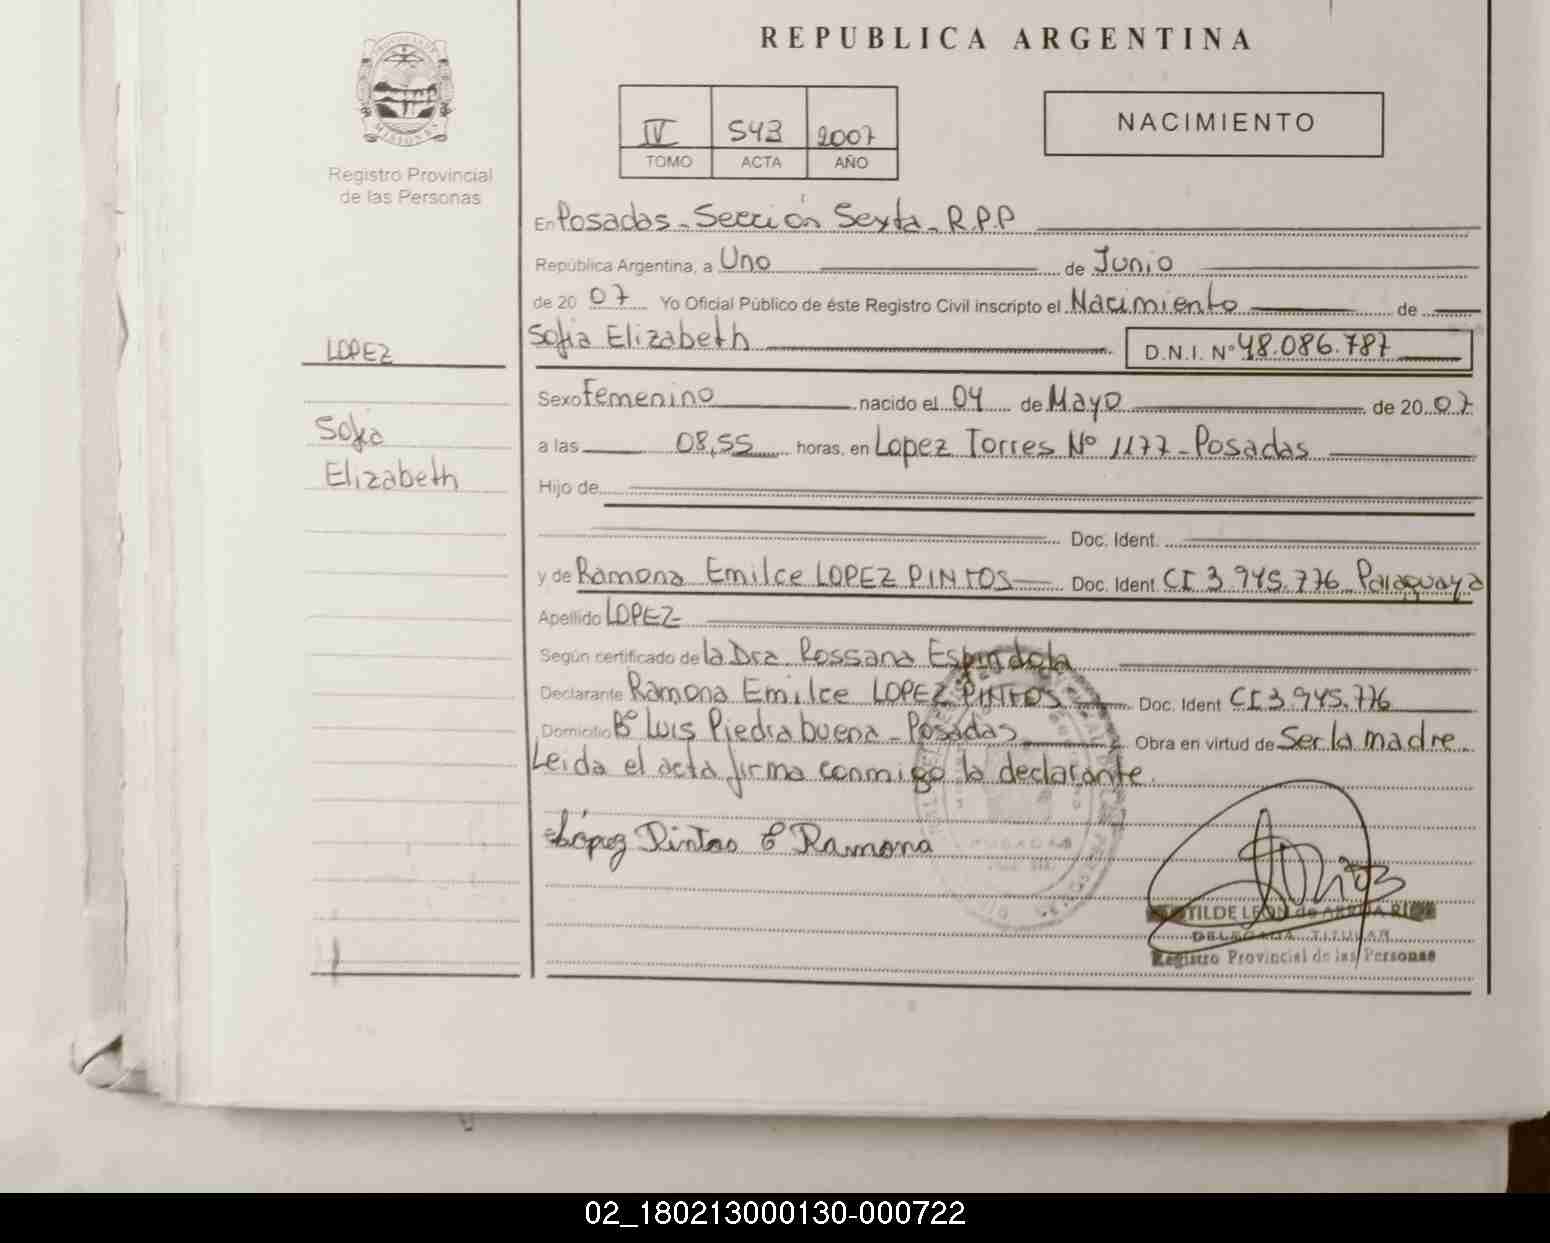 REPUBLICA ARGENTINA
MISIONES
Registro Provincial
de las Personas
IV 543 2007
TOMO ACTA AÑO
NACIMIENTO
En Posadas - Sección Sexta - R.P.P
República Argentina, a Uno de Junio
de 20 07 Yo Oficial Público de éste Registro Civil inscripto el Nacimiento de
Sofia Elizabeth D.N.I. Nº 48.086.787
LOPEZ
Sofia
Elizabeth
Sexo Femenino nacido el 04 de Mayo de 20 07
a las 08,55 horas, en Lopez Torres Nº 1177 - Posadas
Hijo de
Doc. Ident.
y de Ramona Emilce LOPEZ PINTOS Doc. Ident. CI 3.945.776 Paraguaya
Apellido LOPEZ
Según certificado de la Dra. Rossana Espindola
Declarante Ramona Emilce LOPEZ PINTOS Doc. Ident CI 3.945.776
Domicilio Bº Luis Piedrabuena - Posadas Obra en virtud de Ser la madre
Leida el acta firma conmigo la declarante.
López Pintos E Ramona
POSADAS
DELEGADA TITULAR
Registro Provincial de las Personas
02_180213000130-000722